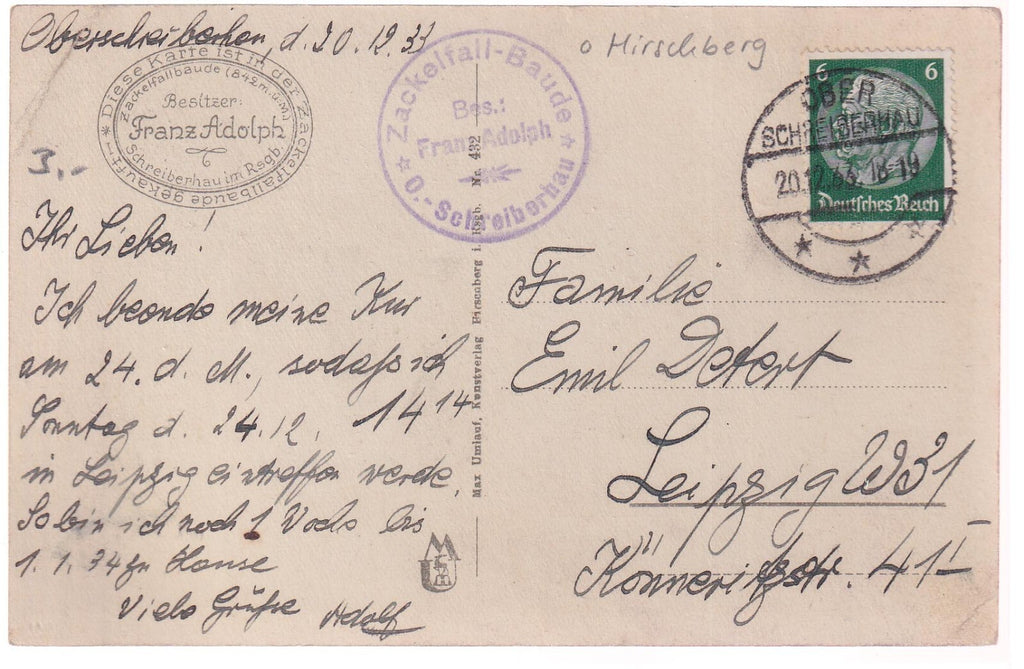 Oberschreiberhau, d. 20.12.33
* Diese Karte ist in der Zackelfallbaude gekauft! *
Zackelfallbaude (842 m.ü.M)
Besitzer:
Franz Adolph
Schreiberhau im Rsgb.
3,-
☆ Zackelfall-Baude ☆
Bes.:
Franz Adolph
O.-Schreiberhau
o Hirschberg
6 6
Deutsches Reich
OBER
SCHREIBERHAU
20.12.33.18-19
Ihr Lieben!
Ich beende meine Kur
am 24. d. M., sodaß ich
Sonntag d. 24.12. 14 14
in Leipzig eintreffen werde.
So bin ich noch 1 Woche bis
1. 1. 34 zu Hause
Viele Grüße Adolf
Max Umlauf, Kunstverlag Hirschberg i. Rsgb. Nr. 432
Familie
Emil Detert
Leipzig W31
Könneritzstr. 41 I